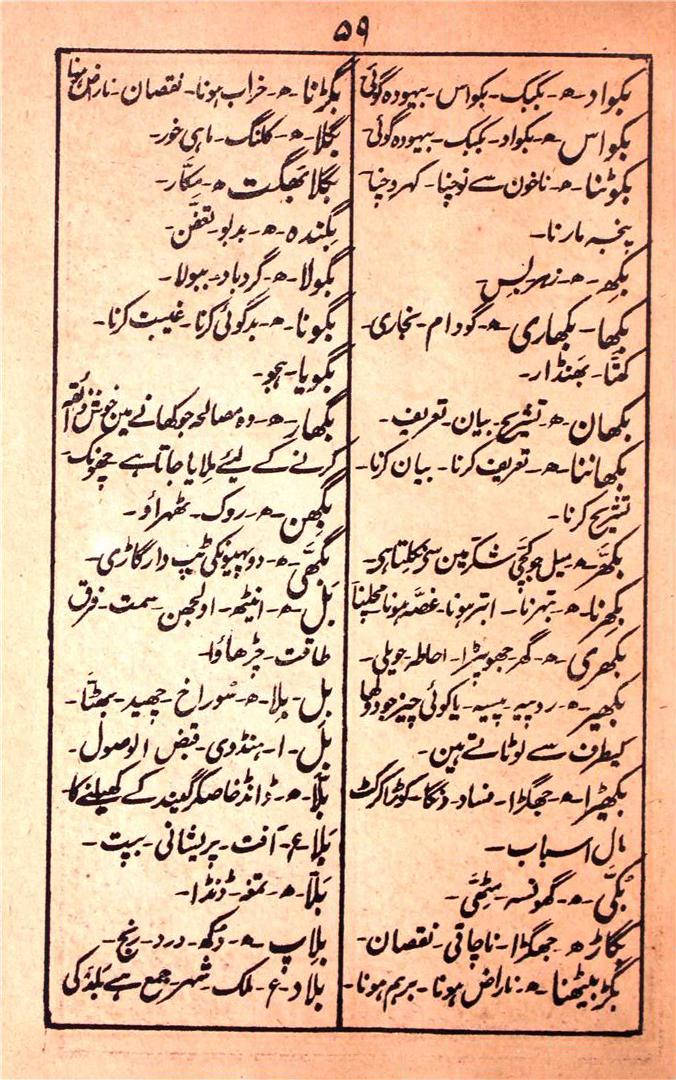 ۵۹
بکواد۔ ھ۔ بکبک۔ بکواس۔ بیہودہ گوئی
بکواس۔ ھ۔ بکواد۔ بکبک۔ بیہودہ گوئی
بکوٹنا۔ ھ۔ ناخون سے نوچنا۔ کہروچنا
پنجہ مارنا۔
بکھ۔ ھ۔ زہر۔ بس
بکھا۔ بکھاری۔ ھ۔ گودام۔ بخاری۔
کھتّا۔ بھنڈار۔
بکھان۔ ھ۔ تشریح۔ بیان۔ تعریف۔
بکھاننا۔ ھ۔ تعریف کرنا۔ بیان کرنا۔
تشریح کرنا۔
بکھّر۔ ھ۔ میل جو کچّی شکر مین سے نکلتا ہی۔
بکھرنا۔ ھ۔ تہرنا۔ ابتر ہونا۔ غصّہ ہونا مچلنا
بکھری۔ ھ۔ گھر۔ جھوپڑا۔ احاطہ۔ حویلی۔
بکھیر۔ ھ۔ روپیہ۔ پیسہ۔ یا کوئی چیز جو دولھا
کیطرف سے لوٹاتے ہین۔
بکھیڑا۔ ھ۔ جھگڑا۔ فساد۔ دنگا۔ کوڑا کرکٹ
مال اسباب۔
بکّی۔ ھ۔ گھونسہ۔ مٹھّی۔
بگاڑ ھ۔ جھگڑا۔ ناچاقی۔ نقصان۔
بگڑ بیٹھنا۔ ھ۔ ناراض ہونا۔ برہم ہونا۔
بگڑنا۔ ھ۔ خراب ہونا۔ نقصان۔ ناراض ہونا
بگلا۔ ھ۔ کلنگ۔ ماہی خور۔
بگلا بھگت ھ۔ مکّار۔
بگندہ۔ ھ۔ بدبو۔ تعفّن۔
بگولا۔ ھ۔ گردباد۔ ببولا۔
بگونا۔ ھ۔ بدگوئی کرنا۔ غیبت کرنا۔
بگویا۔ ہجو۔
بگھار۔ ھ۔ وہ مصالحہ جو کھانے مین خوش ذائقہ
کرنے کے لیئے ملایا جاتا ہے چھونک۔
بگھن۔ ھ۔ روک۔ ٹھہراؤ۔
بگھّی۔ ھ۔ دو پہیونکی ٹپ دار گاڑی۔
بَل۔ ھ۔ اینٹھ۔ اولجھن۔ سمت۔ فرق
طاقت۔ چڑھاوا۔
بل۔ بلا۔ ھ۔ سوراخ۔ چھید۔ بھٹّا۔
بل۔ ا۔ ہنڈوی۔ قبض الوصول۔
بلّا۔ ھ۔ ڈانڈ خاصکر گیند کے کھیلنے کا۔
بلا ع۔ آفت۔ پریشانی۔ بپت۔
بَلّا۔ ھ۔ تمغہ۔ ڈنڈا۔
بلاپ ھ۔ دُکھ۔ درد۔ رنج۔
بلاد۔ ع۔ ملک۔ شہر۔ جمع ہے بلدٌ کی